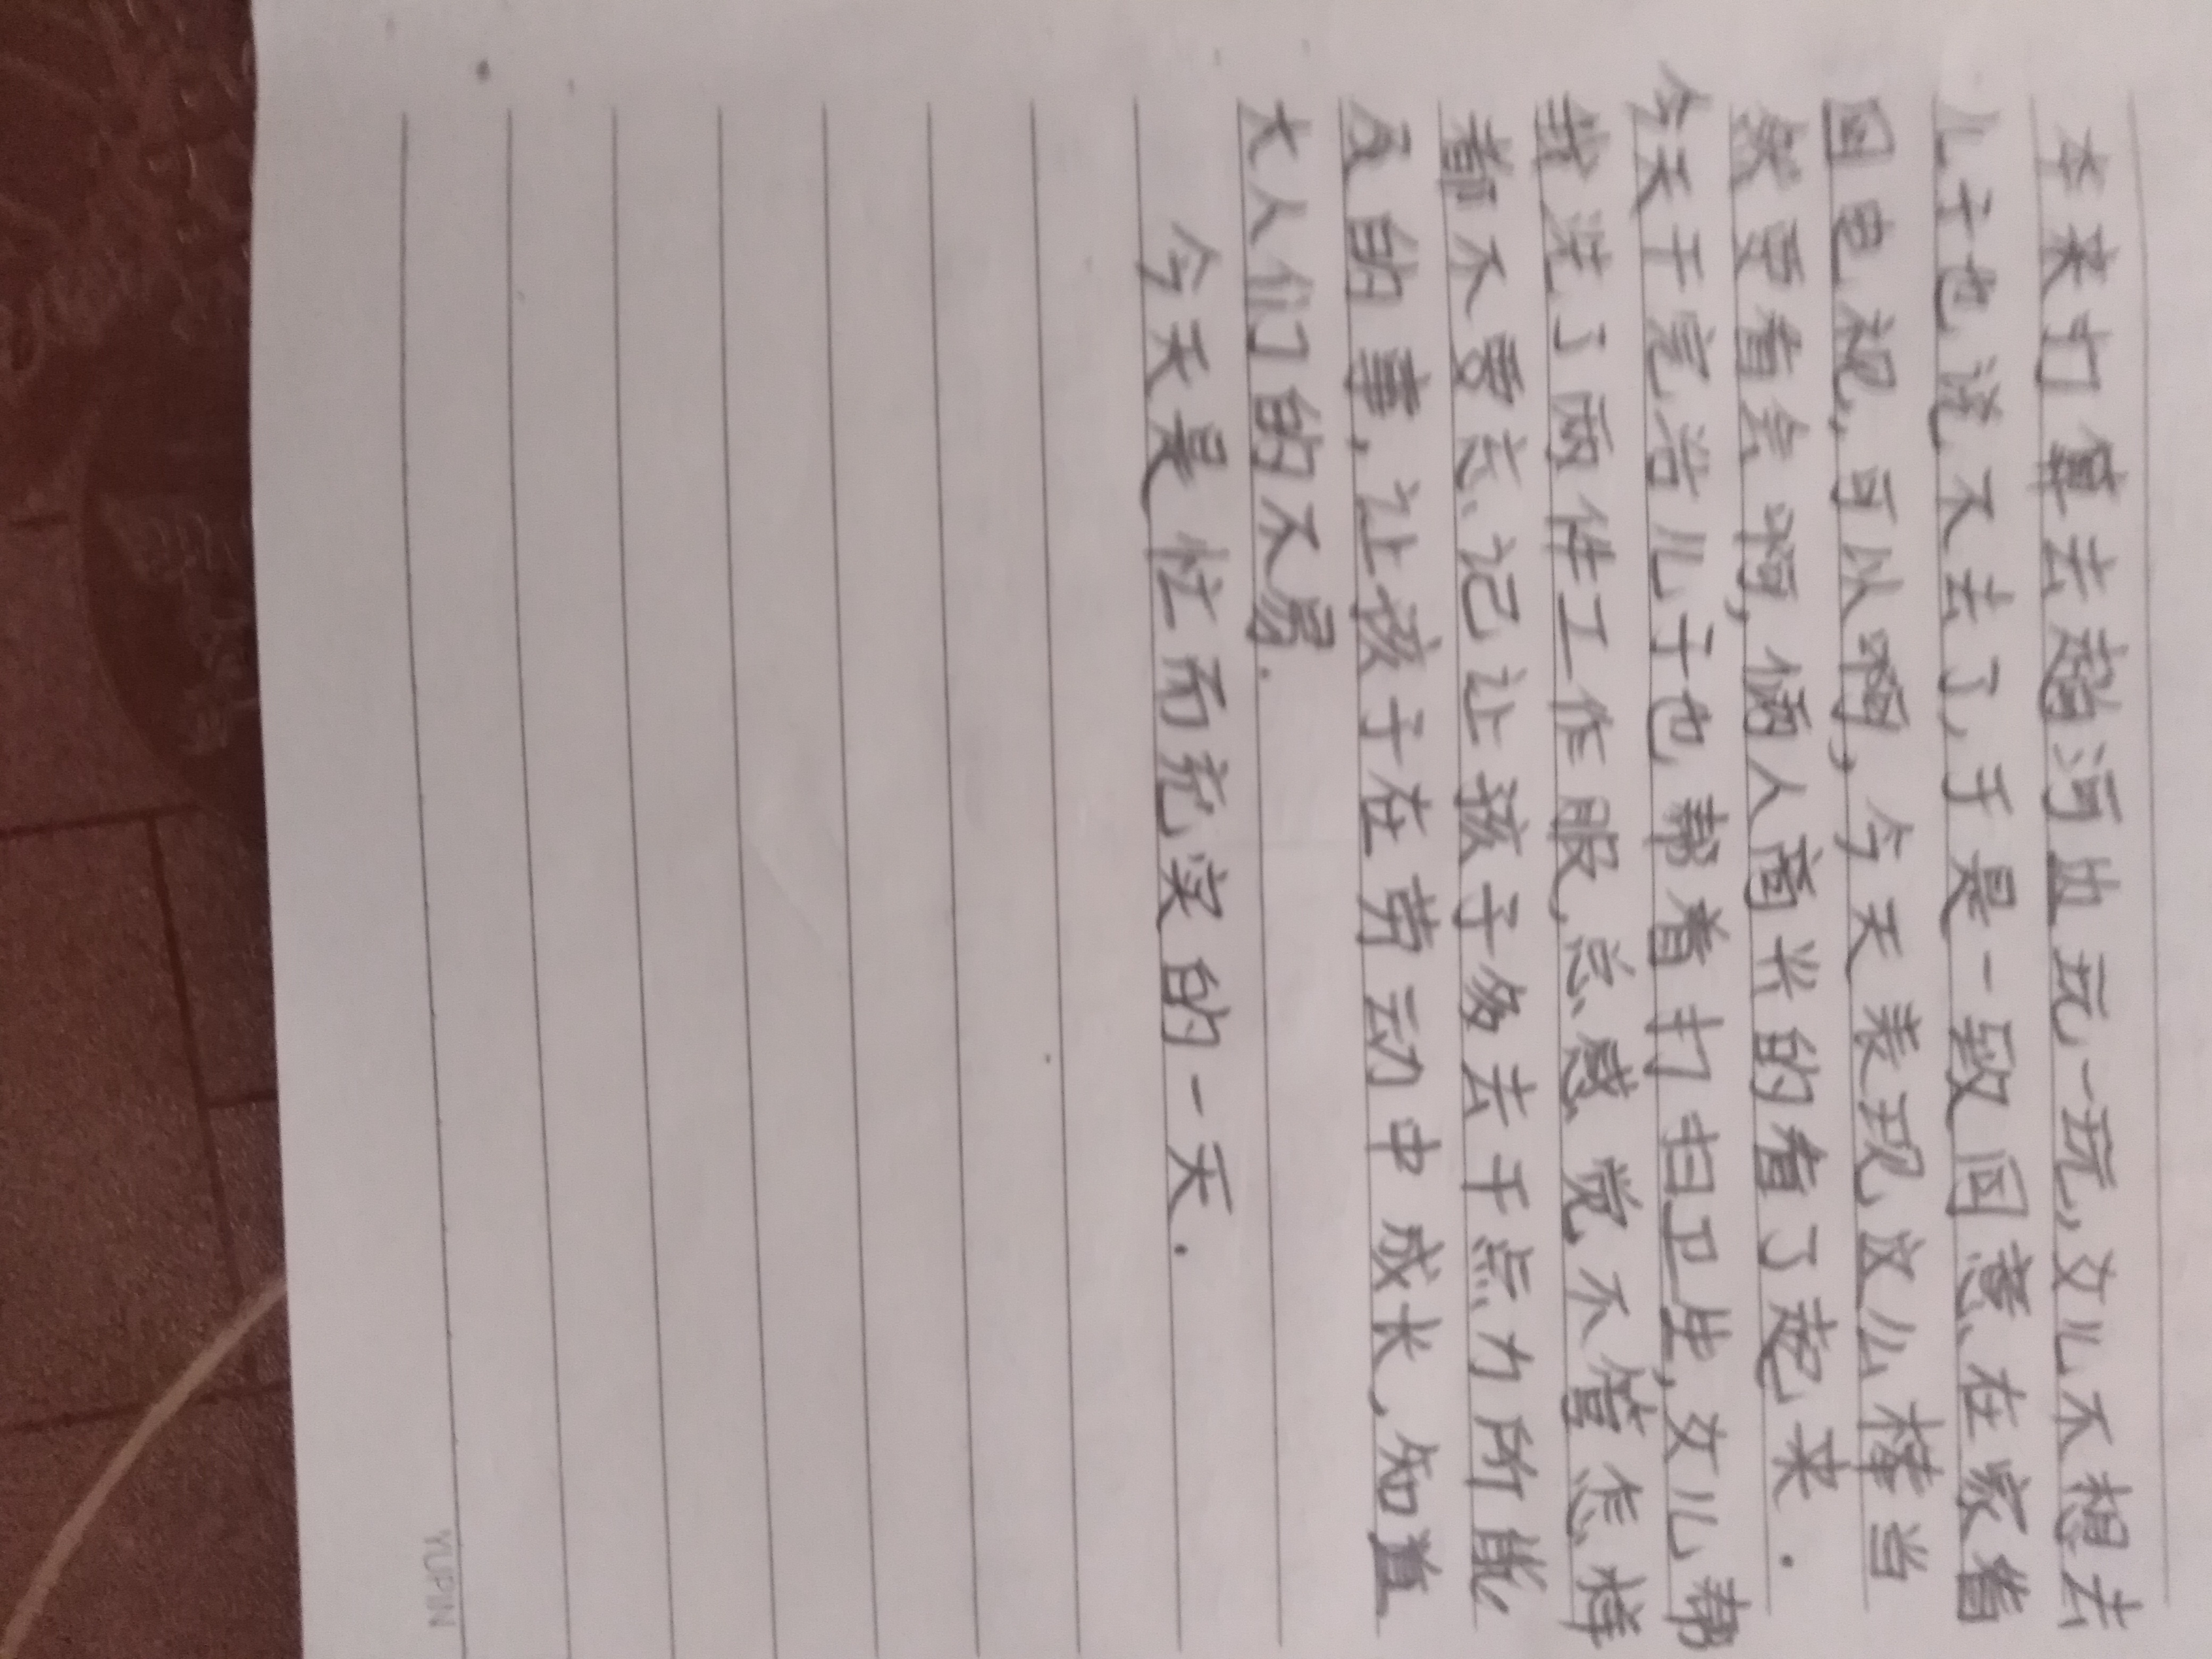 本来打算去趟河边玩一玩,女儿不想去
儿子也说不去了,于是一致同意在家看
回电视,可以啊,今天表现这么棒当
然要看会啊,俩人商半的看了起来.
今天于完活儿子也帮着打扫卫生,女儿帮
我洗了两件工作服,总感觉不管怎样
都不要忘记让孩子多去干点力所能
及的事,让孩子在劳动中成长,知道
大人们的不易.
今天是忙而充实的一天.
YUPIN